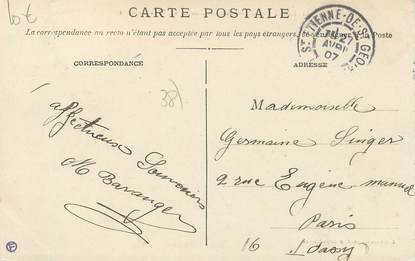 10€
CARTE POSTALE
La correspondance au recto n'était pas acceptée par tous les pays étrangers
CORRESPONDANCE
ADRESSE
ST ETIENNE-DE-ST GEO
AVRIL
07
38)
affectueux Souvenirs
M Baranger
Mademoiselle
Germaine Singer
2 rue Eugène manuel
Paris
16
Passy